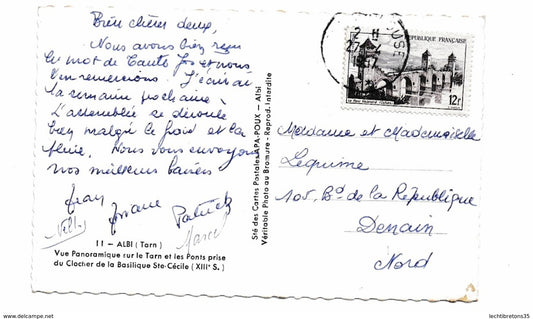 Bien chères deux,
Nous avons bien reçu
le mot de Tante Jo et vous
en remercions. J'écrirai
la semaine prochaine.
L'assemblée se déroule
bien malgré le froid et la
pluie. Nous vous envoyons
nos meilleurs baisers
Jean
Josiane
Patrick
Nelly
Marcel
11 - ALBI (Tarn)
Vue Panoramique sur le Tarn et les Ponts prise
du Clocher de la Basilique Ste-Cécile (XIIIe S.)
Sté des Cartes Postales APA-POUX - Albi
Véritable Photo au Bromure - Reprod. Interdite
REPUBLIQUE FRANÇAISE
12F
Mesdame et Mademoiselle
Lequime
105, Bd de la République
Denain
Nord
www.delcampe.net
lechtibretons35